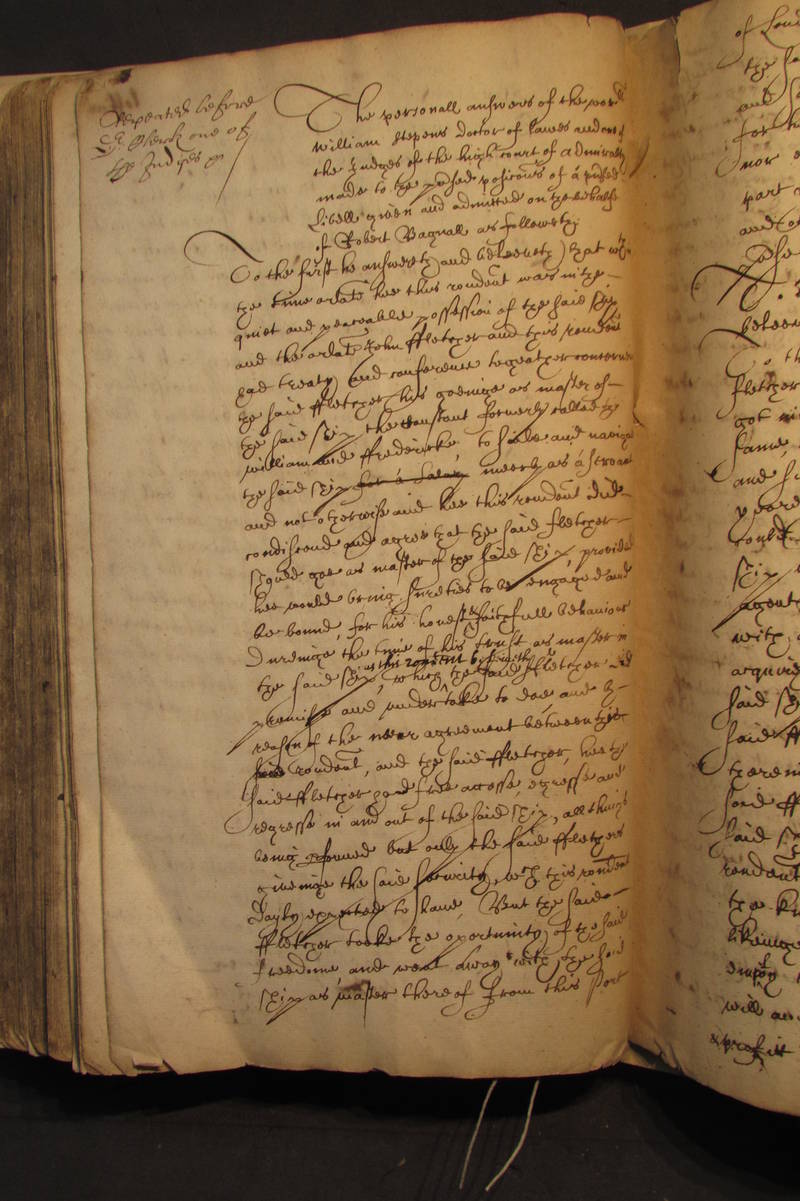 Repeated before
Dr Clerk one of
the Judges
The personall answers of the wor:ll
William Stepens doctor of lawes and one of
the Judges of the high Court of Admiralty
made to the p̱tsed posicons of a p̱tsed
Libell given and admitted on the behalfe
of Robert Bagnall as followeth
To the first he answereth and beleeveth, that within
the time arlate hee this rondent was in the
quiet and peaceable possession of the said ship
and the arlate John Ffletcher and this rondent
had treaty and conference together concerning
the said Ffletcher his goeinge as master of
the said ship the Constant formerly called the
William and Ffredericke, to saile and navigate
the said ship for a Salary meerly as a servant
and not otherwise and hee this rondent did
condiscend and agree that the said Fletcher
should goe as master of the said ship, provided
hee would bring sureties to be engaged and
be bound, for his honest & faithfull behaviour
Dureinge the time of his trust as master in
the said ship,
as this rondent beleeveth
which the said Ffletcher did
promise and undertake to doe, and by
reason of the neer agreement betweene this
said rondent, and the said Ffletcher, hee the
said Ffletcher had free accesse, egresse and
regresse in and out of the said ship, all things
being p̱formed but only the said Ffletchers
giveinge the said security, wch this rondent
dayly expected to have, But the said
Ffletcher tooke the oportunity of the said
freedome, and went away with the said
ship as master thereof from this Port
of Lond
the sa
and
for h
nor
part
and
beleev
Fletcher
got
same,
and
yeere
could
ship
agent
with
acquire
said sh
said ff
therein
said ff
said s
rondent
the k
likeinge
employ
will an
profit